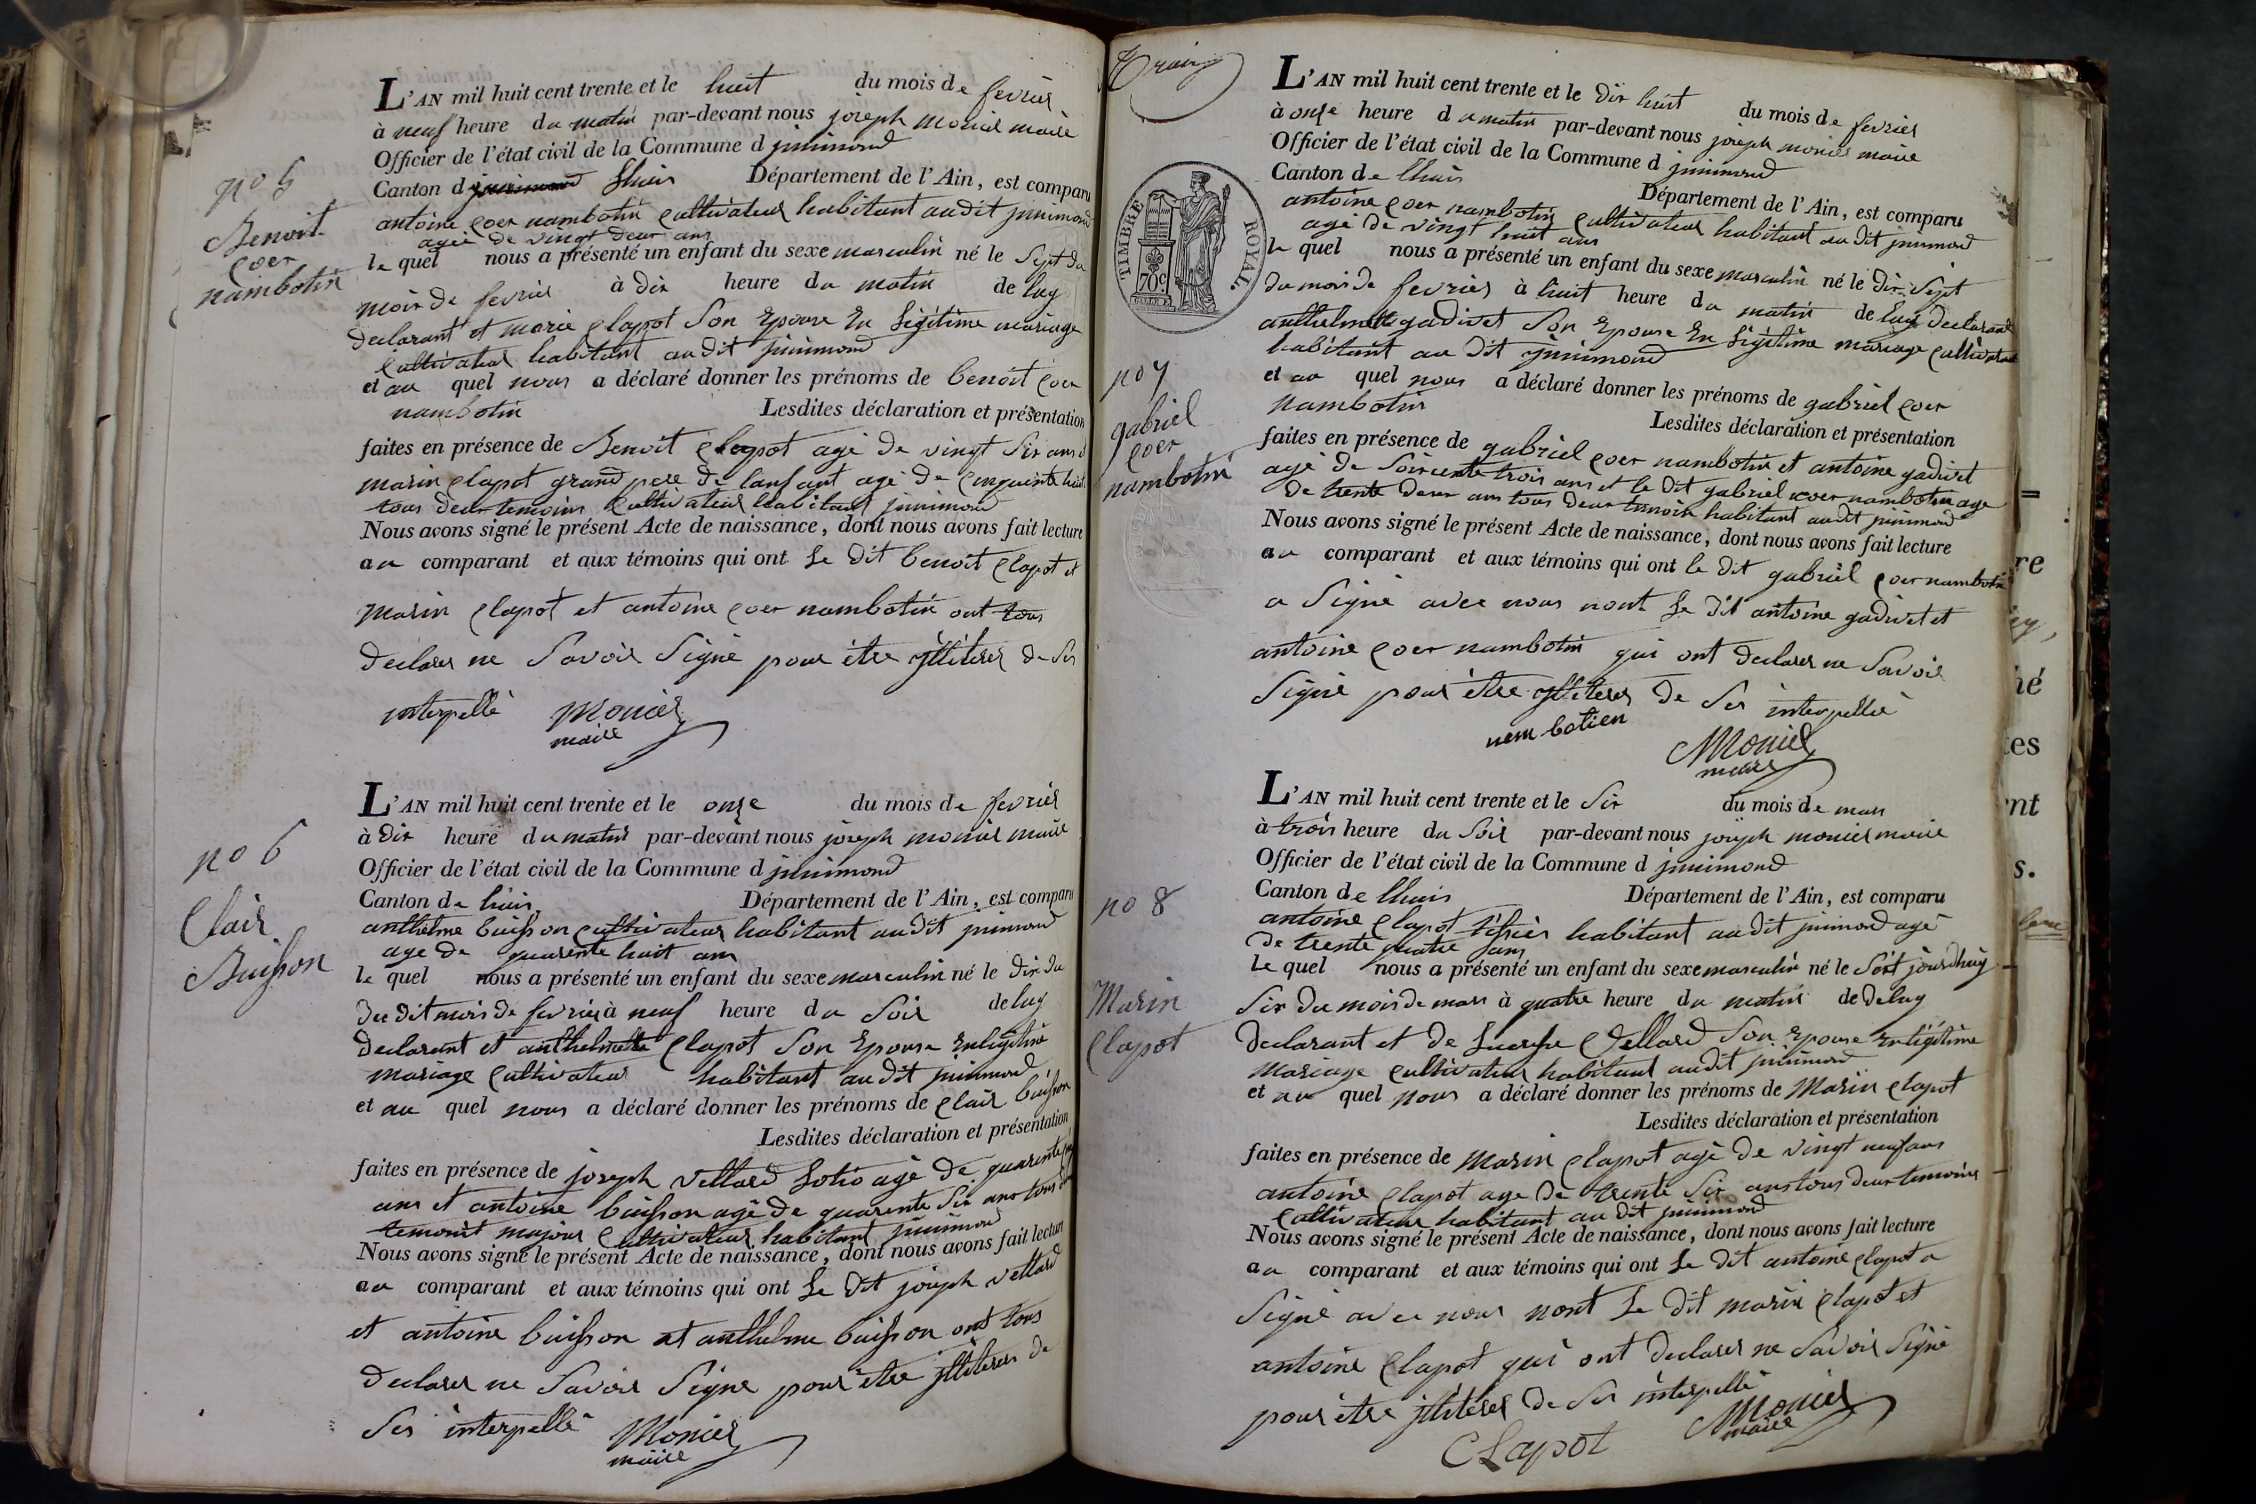 no 5
Benoit
coer
nambotin
L'AN mil huit cent trente et le huit du mois de fevrier
à neuf heure du matin par-devant nous joseph monier maire
Officier de l'état civil de la Commune d jnnimond
Canton d jnnimond lhuis Département de l'Ain, est comparu
antoine coer nambotin cultivateur habitant audit jnnimond
agée de vingt deux ans
le quel nous a présenté un enfant du sexe masculin né le sept du
mois de fevrier à dix heure du matin de luy
declarant et marie clapot son epouse en légitime mariage
cultivateur habitant audit jnnimond
et au quel nous a déclaré donner les prénoms de benoit coer
nambotin Lesdites déclaration et présentation
faites en présence de Benoit clapot agé de vingt six ans
marin clapot grand pere de lanfant agé de cinquante huit
tous deux temoins cultivateur habitant jnnimond
Nous avons signé le présent Acte de naissance, dont nous avons fait lecture
au comparant et aux témoins qui ont le dit benoit clapot et
marin clapot et antoine coer nambotin ont tous
declarer ne savoir signé pour être jlliterer de ses
interpellé monier
maire
no 6
Clair
Buisson
L'AN mil huit cent trente et le onze du mois de fevrier
à dix heure du matin par-devant nous joseph monier maire
Officier de l'état civil de la Commune d jnnimond
Canton de lhuis Département de l'Ain, est comparu
anthelme buisson cultivateur habitant audit jnnimond
age de quarente huit ans
le quel nous a présenté un enfant du sexe masculin né le dix du
du dit mois de fevrier à neuf heure du soir de luy
declarant et anthelmette clapot son epouse enlégitime
mariage cultivateur habitant audit jnnimond
et au quel nous a déclaré donner les prénoms de clair buisson
Lesdites déclaration et présentation
faites en présence de joseph vettard agé de quarente
ans et antoine buisson agé de quarente six ans tous
temoins majeur cultivateur habitant jnnimond
Nous avons signé le présent Acte de naissance, dont nous avons fait lecture
au comparant et aux témoins qui ont le dit joseph vettard
et antoine buisson et anthelme buisson ont tous
declarer ne savoir signe pour être jlliterer de
ses interpellé monier
maire
TIMBRE ROYAL.
70c
no 7
gabriel
coer
nambotin
L'AN mil huit cent trente et le dix huit du mois de fevrier
à onze heure du matin par-devant nous joseph monier maire
Officier de l'état civil de la Commune d jnnimond
Canton de lhuis Département de l'Ain, est comparu
antoine coer nambotin cultivateur habitant au dit jnnimond
agé de vingt huit ans
le quel nous a présenté un enfant du sexe masculin né le dix sept
du mois de fevrier à huit heure du matin de luy declarant
anthelmette gadivet son epouse en légitime mariage cultivateur
habitant au dit jnnimond
et au quel nous a déclaré donner les prénoms de gabriel coer
nambotin Lesdites déclaration et présentation
faites en présence de gabriel coer nambotin et antoine gadivet
agé de soixente trois ans et le dit gabriel coer nambotin age
de trente deux ans tous deux temoin habitant audit jnnimond
Nous avons signé le présent Acte de naissance, dont nous avons fait lecture
au comparant et aux témoins qui ont le dit gabriel coer nambotin
a signé avec nous nont le dit antoine gadivet et
antoine coer nambotin qui ont declarer ne savoir
signé pour être jlliterer de ses interpellé
nem botien monier
maire
no 8
Marin
Clapot
L'AN mil huit cent trente et le six du mois de mars
à trois heure du soir par-devant nous joseph monier maire
Officier de l'état civil de la Commune d jnnimond
Canton de lhuis Département de l'Ain, est comparu
antoine clapot tissier habitant au dit jnnimond agé
de trente quatre ans
le quel nous a présenté un enfant du sexe masculin né le jourdhuy
six du mois de mars à quatre heure du matin de deluy
declarant et de vellard son epouse enlégitime
mariage cultivateur habitant audit jnnimond
et au quel nous a déclaré donner les prénoms de marin clapot
Lesdites déclaration et présentation
faites en présence de marin clapot agé de vingt neuf ans
antoine clapot age de trente six ans tous deux temoins
cultivateur habitant au dit jnnimond
Nous avons signé le présent Acte de naissance, dont nous avons fait lecture
au comparant et aux témoins qui ont le dit antoine clapot a
signé avec nous nont le dit marin clapot et
antoine clapot qui ont declarer ne savoir signé
pour être jlliterer de ses interpellé
CLapot monier
maire